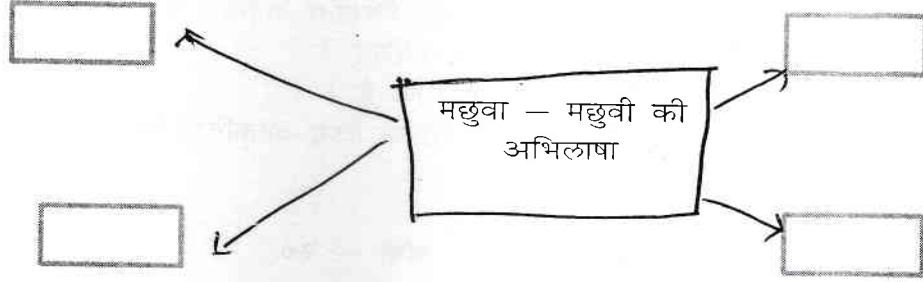 मछुवा – मछुवी की
अभिलाषा